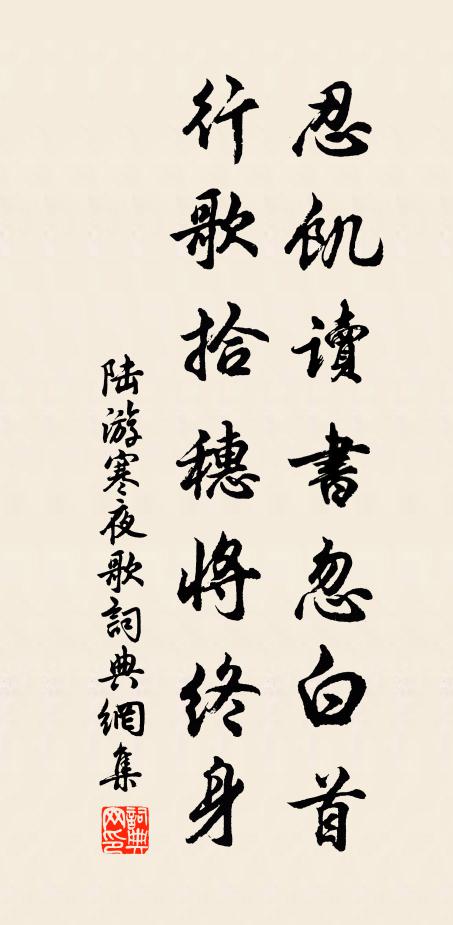 忍飢讀書忽白首
行歌拾穗將終身
陸游寒夜歌詞典網集
詞典網印